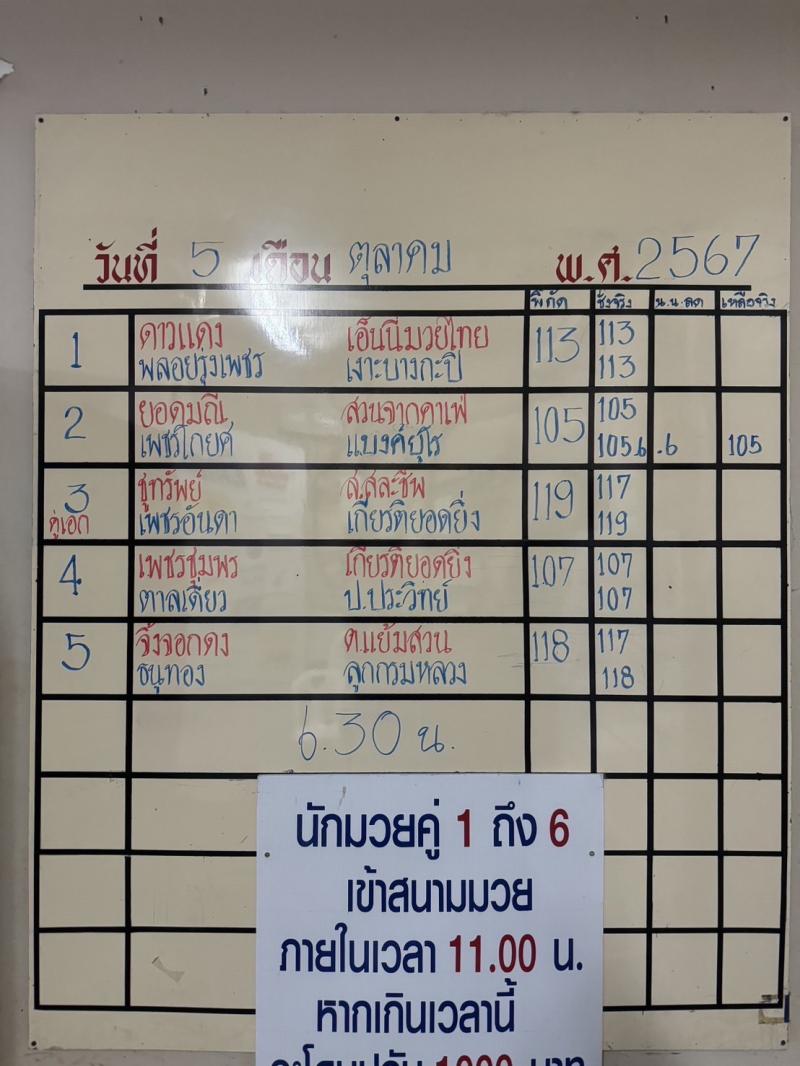 วันที่ 5 เดือน ตุลาคม พ.ศ. 2567
พิกัด ชั่งจริง น.น.ลด เหลือจริง
1 ดาวแดง เอ็นนี่มวยไทย 113 113
พลอยรุ่งเพชร เงาะบางกะปิ 113
2 ยอดมณี สวนจากคาเฟ่ 105 105
เพชรโกยศ แบงค์ยุโร 105.6 .6 105
3 ชูทรัพย์ ส.สละชีพ 119 117
คู่เอก เพชรอันดา เกียรติยอดยิ่ง 119
4 เพชรชุมพร เกียรติยอดยิ่ง 107 107
ตาลเดี่ยว ป.ประวิทย์ 107
5 จิ้งจอกดง ต.แย้มสวน 118 117
ธนูทอง ลูกกรมหลวง 118
6.30 น.
นักมวยคู่ 1 ถึง 6
เข้าสนามมวย
ภายในเวลา 11.00 น.
หากเกินเวลานี้
จะโดนปรับ 1000 บาท